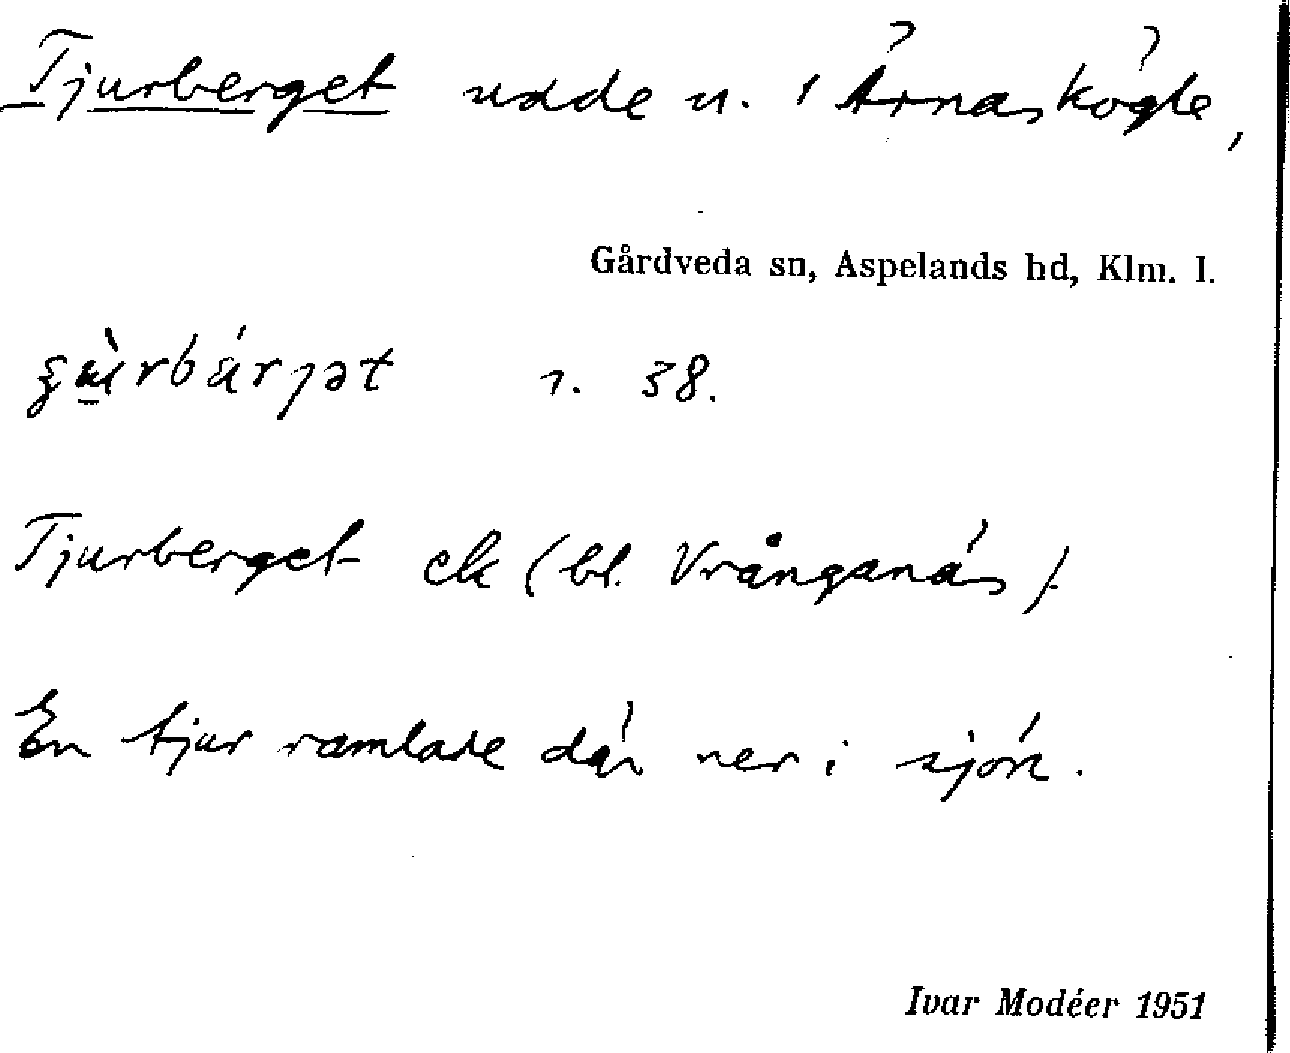 Tjurberget udde n. i Ärnaskögle,
Gårdveda sn, Aspelands hd, Klm. l.
38.
Tjurberget ek (bl. Vrånganäs).
En tjur ramlade där ner i sjön.
Ivar Modéer 1951